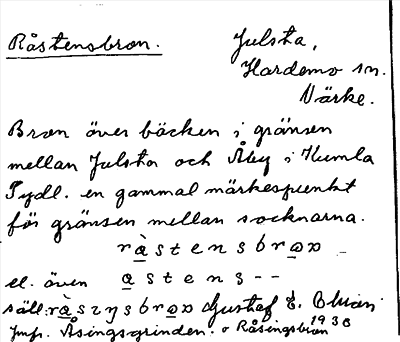 Råstensbron.
Julsta,
Hardemo sn.
Närke.
Bron över bäcken i gränsen
mellan Julsta och Åby i Kumla
Tydl. en gammal märkespunkt
för gränsen mellan socknarna.
råstensbron
el. även åstens--
säll: Gustaf E. 1938
Jmf. Åsingsgrinden. o Råsingsbron